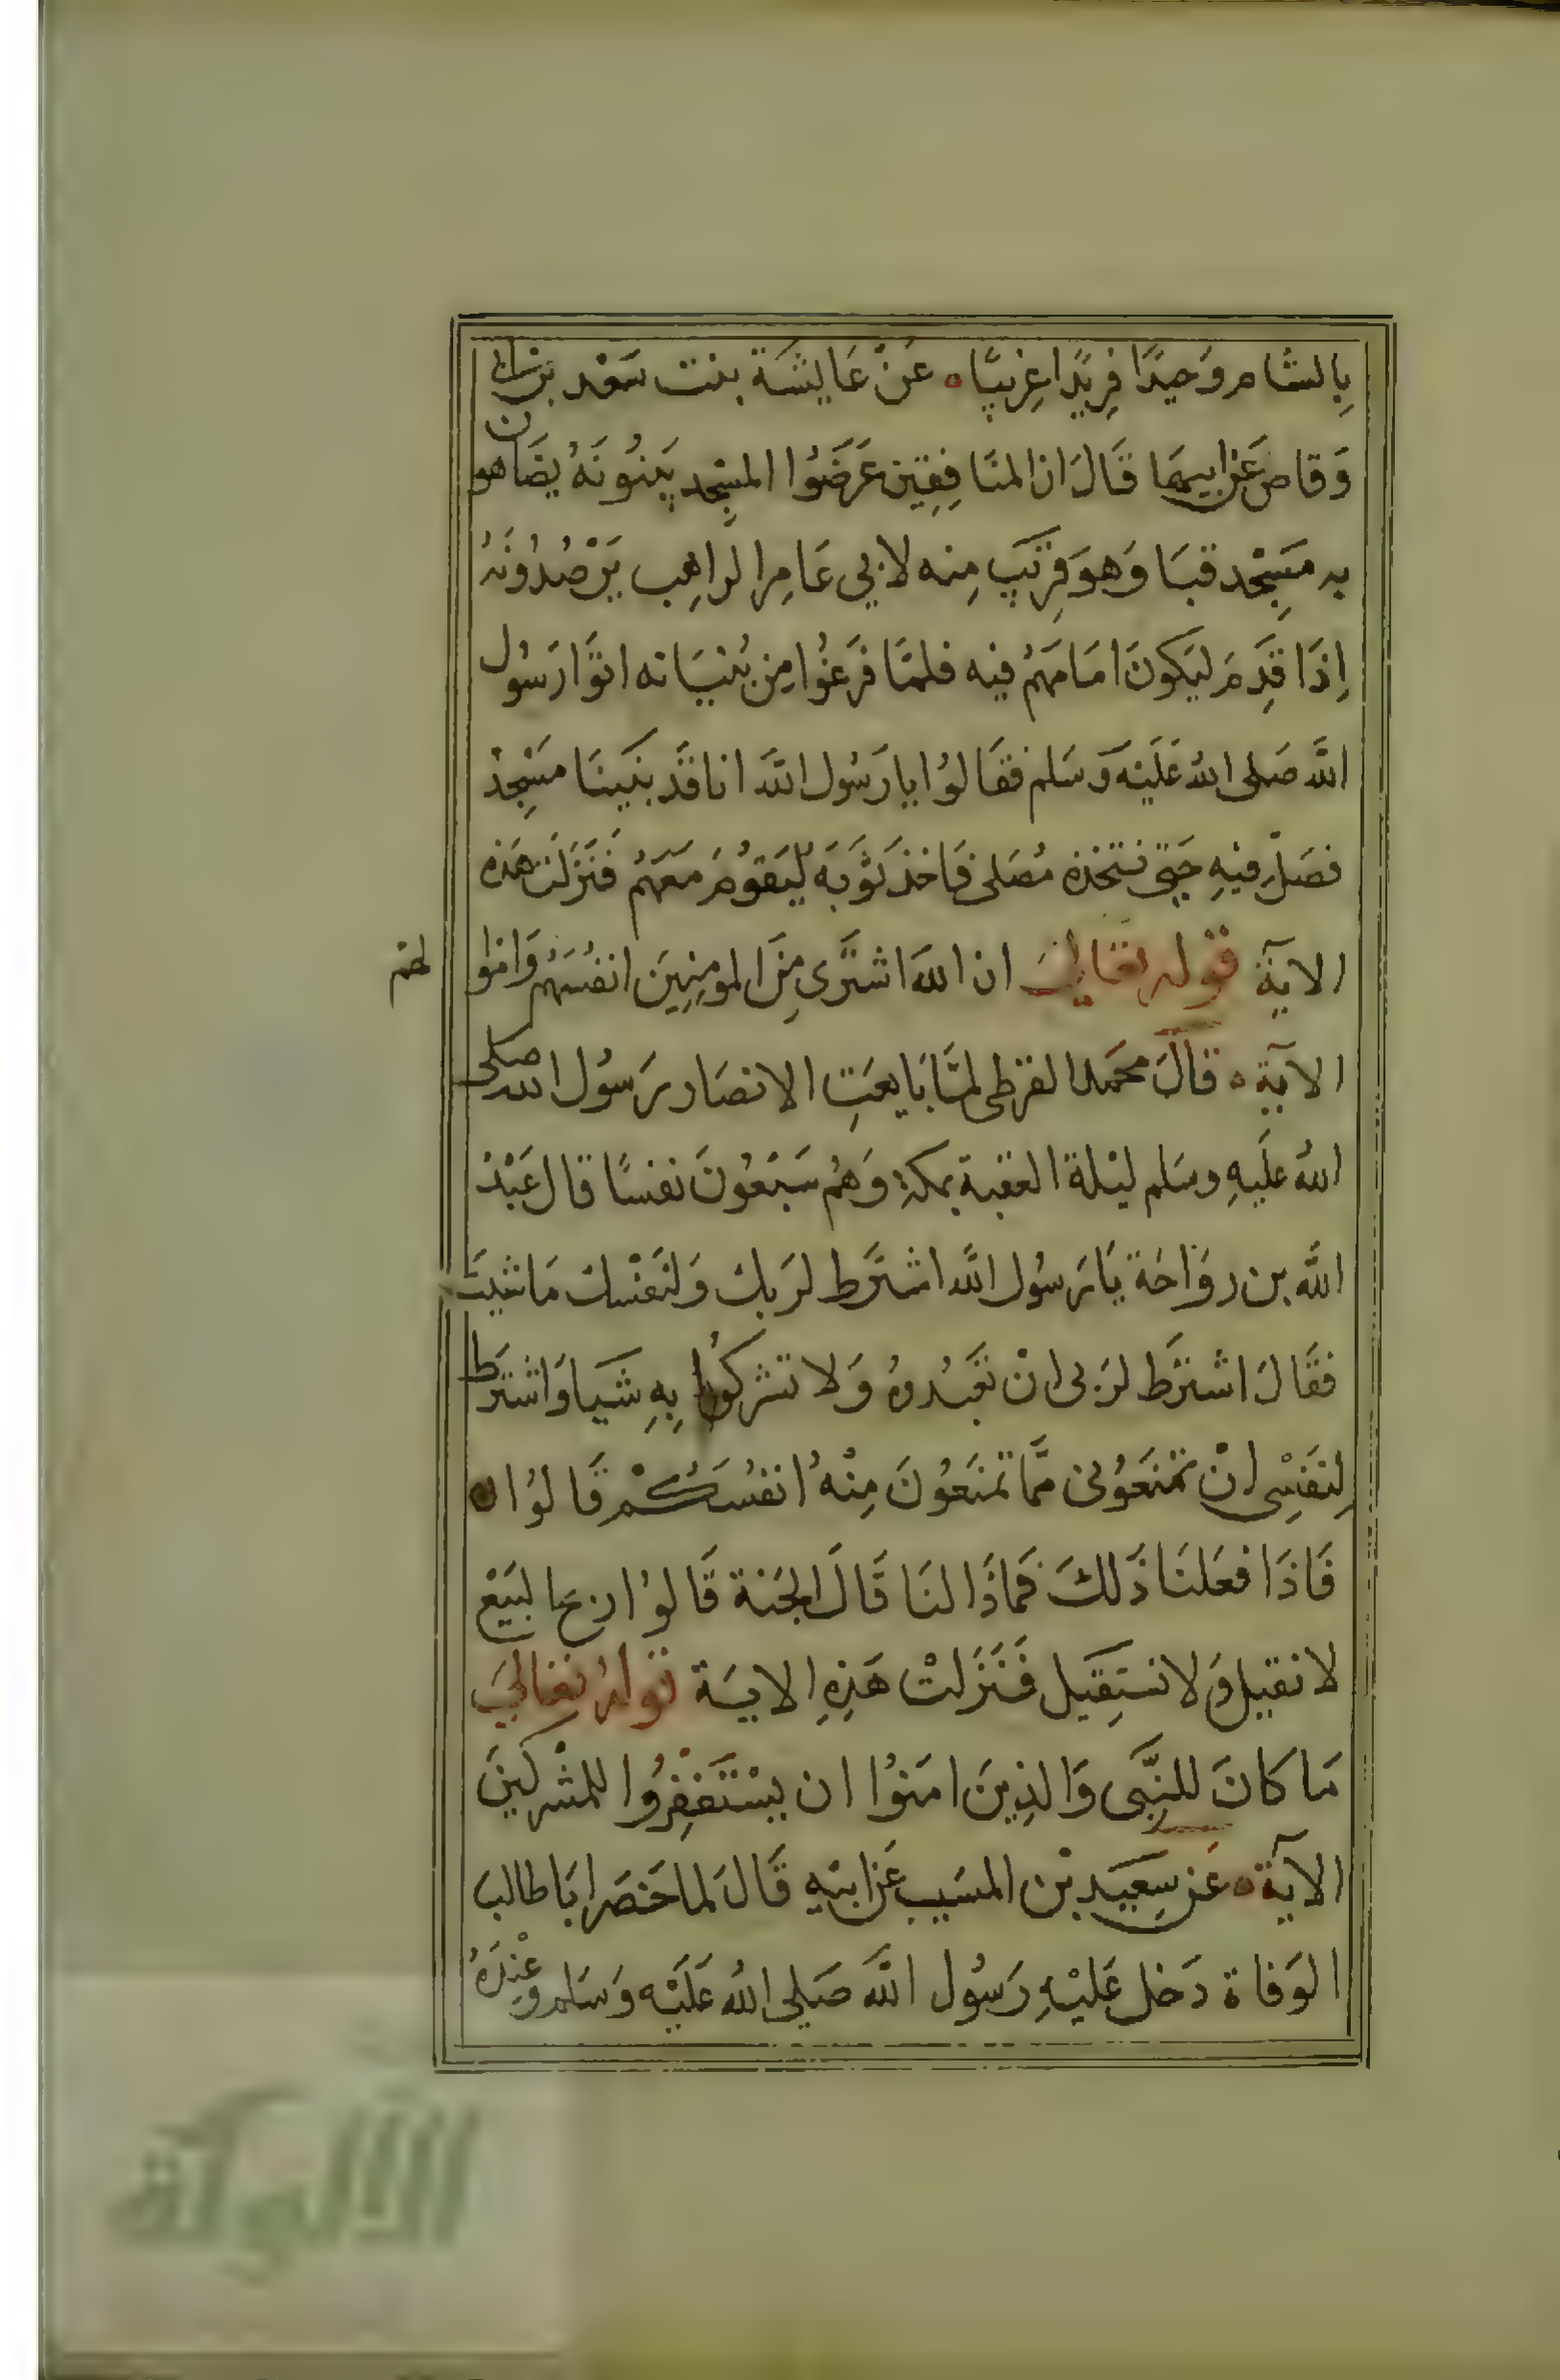 بِالشام وَحيدًا فِريدًا غِريبًا ه عَنْ عَايشَة بنت سَعْد بْن ابى
وَقاص عَن ابيهَا قَالَ ان المنَافِقِين عَرَضُوا المسْجِد يَبنُونَهُ يضَاهون
به مَسْجِد قبَا وَهوَ قِريَب مِنه لابي عَامِر الراهِب يَرْصُدُونَهُ
اِذَا قَدِمَ ليَكونَ امَامَهُم فيه فلمَّا فَرَغُوا مِن بُنيَانه اتَوَّا رَسوُل
اللَّه صَلى اللهُ عَلَيْه وَسَلم فقَالوُا يا رَسُول اللَّه انا قَد بنَينَا مَسْجِدْ
فصَلِّ فيْهِ حَتى نتخذه مُصَلى فَاخذ ثوَبَه ليَقوُمَ مَعَهُم فَنَزلَت هَذه
الآيَة قوله تعَالىَ ان اللهَ اشترَى مِنَ المومِنِينَ انفُسَهُم وَاموا
لهم
الآية ه قَالَ محَمد القرظى لمَّا بَايعَتِ الانصَار رَسوُل الله صلى
اللهُ عَليهِ وسَلم ليْلة العقبة بمكة وَهُم سَبْعُونَ نفسًا قال عَبْدُ
اللَّه بن روَاحَة يَا رَسوُل اللَّه اشترَط لرَبك وَلنَفْسك مَا شيتَ
فقَالَ اشترَط لرَبى انْ تعَبُدوهُ وَلا تشركُوا بِهِ شَيَا وَاشترَط
لِنفَسِى انْ تمْنَعوُنى ممَّا تمنَعوُنَ مِنْهُ انفُسَكُمْ قَالوُا ه
فَاذَا فعَلنَا ذَلكَ فمَاذَا لنَا قَالَ الجَنة قَالوُا ربح البَيْع
لا نقيل وَلا نستَقِيل فَنَزَلتْ هَذِهِ الاية قوله تعَالىَ
مَا كانَ للنِبَّى وَالذِينَ امَنوُا ان يسْتَغفِرُوا للمشْركينَ
الآية ه عَن سِعَيد بْن المسَيب عَن ابيهِ قَالَ لما حَضَر ابَا طالب
الوَفاة دَخل عَليْهِ رَسوُل اللَّه صَلى اللهُ عَلَيْه وَسَلم وَعِنْدَهُ
الألوكة